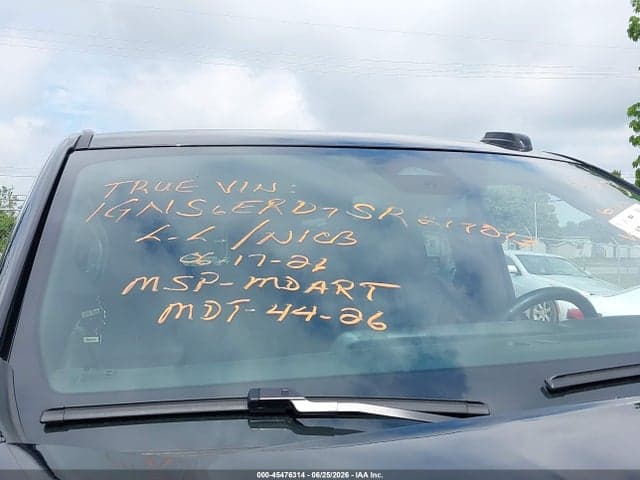 TRUE VIN:
1GNS6ERD7SR217812
L-L / NICB
06-17-26
MSP-MDART
MDT-44-26
000-45476314 - 06/25/2026 - IAA Inc.